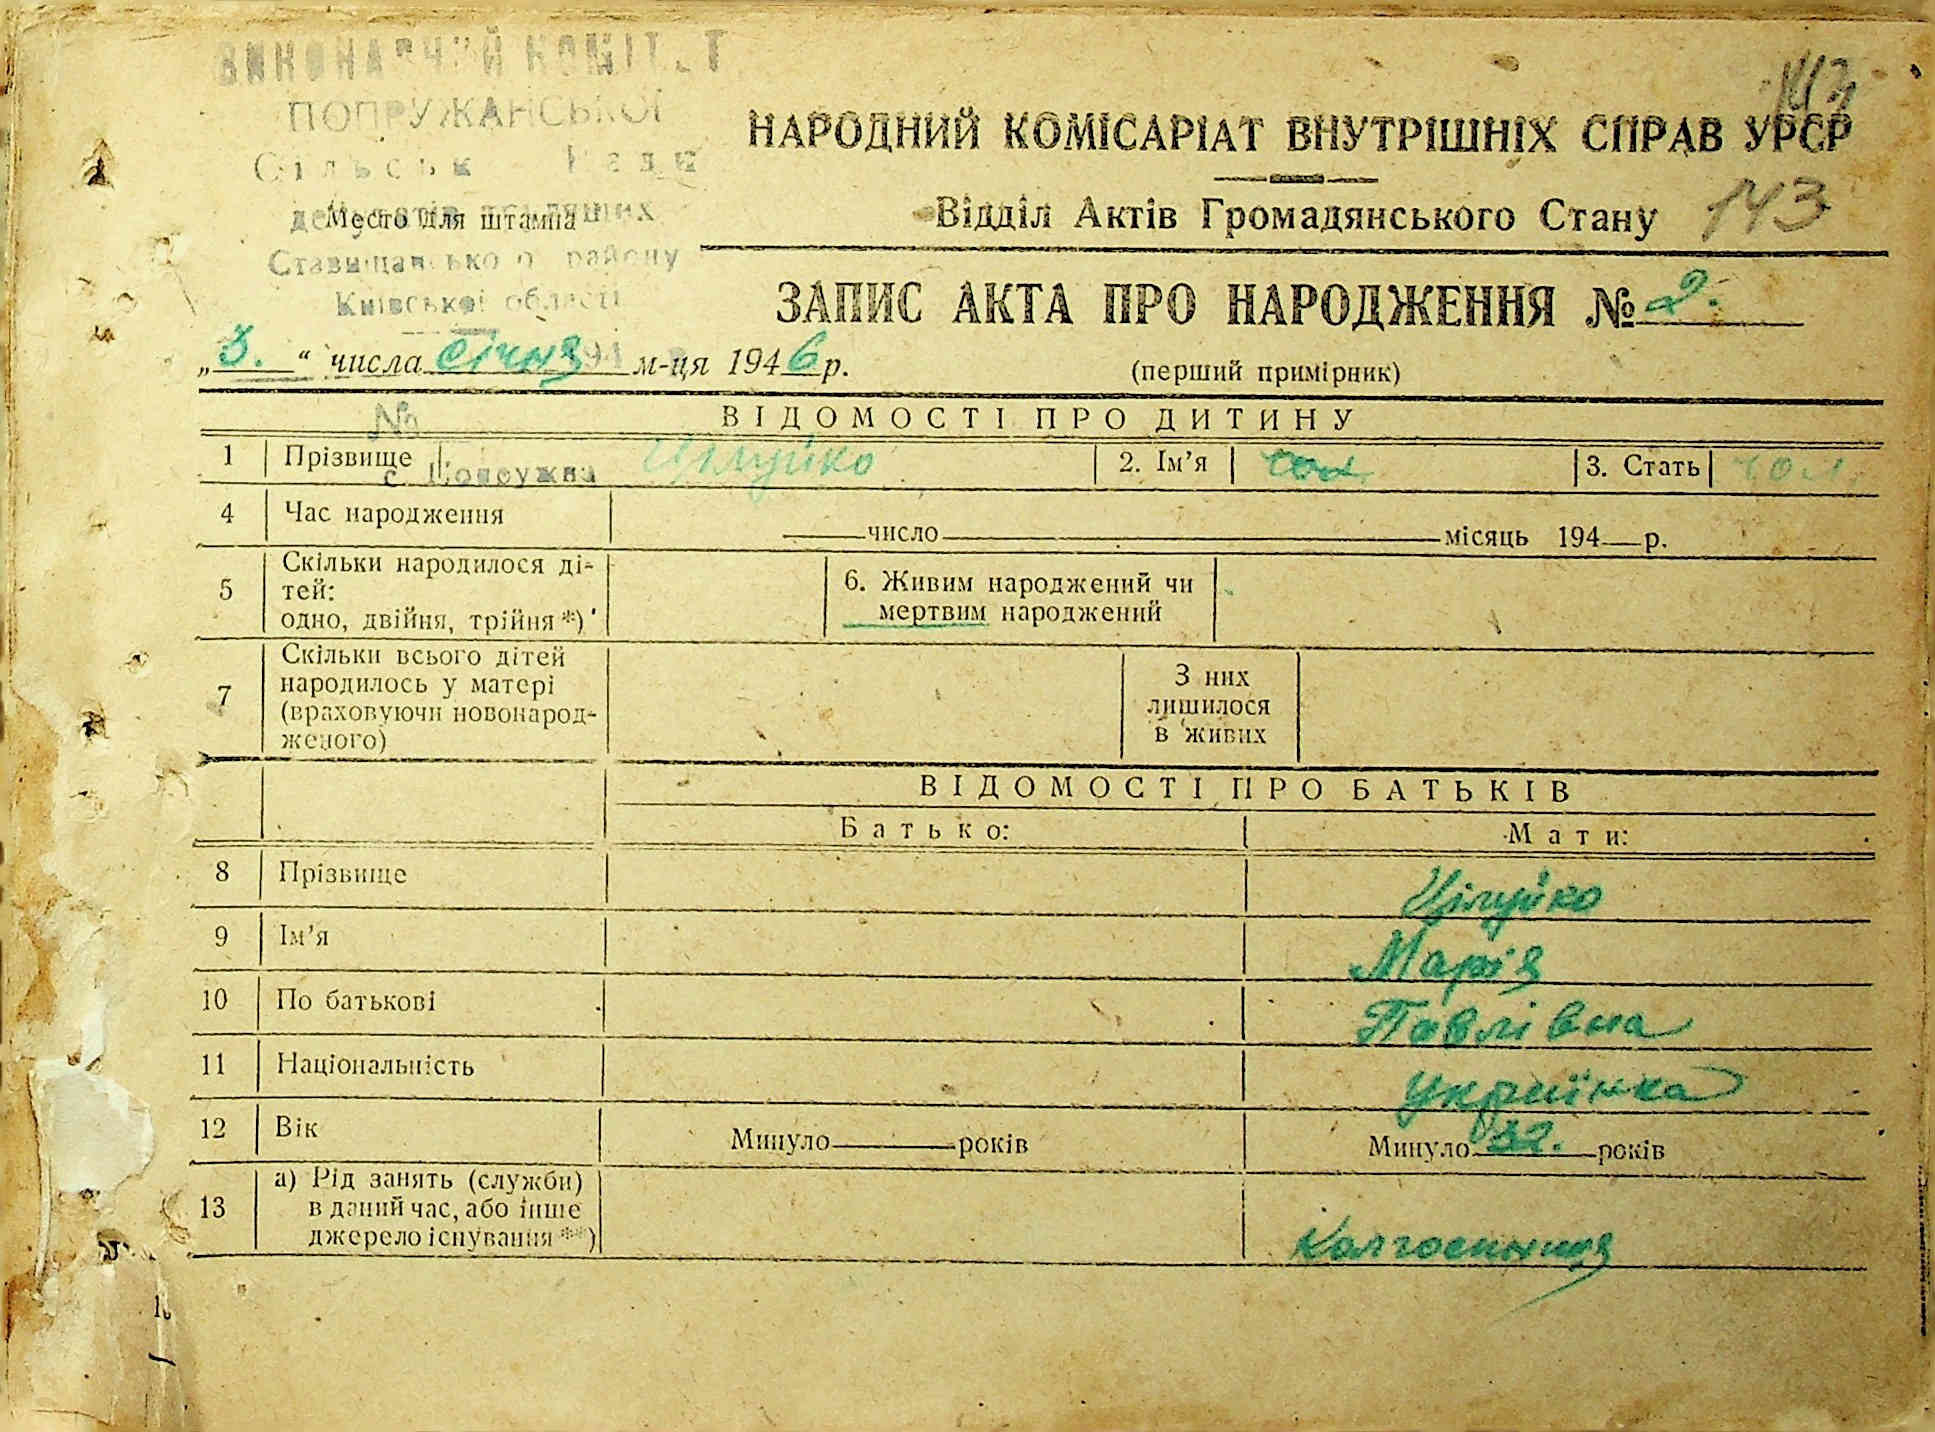 ВИКОНАВЧИЙ КОМІТЕТ
ПОПРУЖАНСЬКОЇ
Сільськ Ради
депутатів трудящих
Ставищанського району
Київської області
Место для штампа
НАРОДНИЙ КОМІСАРІАТ ВНУТРІШНІХ СПРАВ УРСР
Відділ Актів Громадянського Стану 143
ЗАПИС АКТА ПРО НАРОДЖЕННЯ № 2.
„3.“ числа січня м-ця 1946 р.
(перший примірник)
№
ВІДОМОСТІ ПРО ДИТИНУ
1 Прізвище Цілуйко 2. Ім’я 3. Стать чол.
с. Попружна
4 Час народження число місяць 194 р.
5 Скільки народилося ді-
тей:
одно, двійня, трійня *)
6. Живим народжений чи
мертвим народжений
7 Скільки всього дітей
народилось у матері
(враховуючи новонарод-
женого)
З них
лишилося
в живих
ВІДОМОСТІ ПРО БАТЬКІВ
Батько: Мати:
8 Прізвище Цілуйко
9 Ім’я Марія
10 По батькові Павлівна
11 Національність українка
12 Вік Минуло років Минуло 32. років
13 а) Рід занять (служби)
в даний час, або інше
джерело існування **)
Колгоспниця